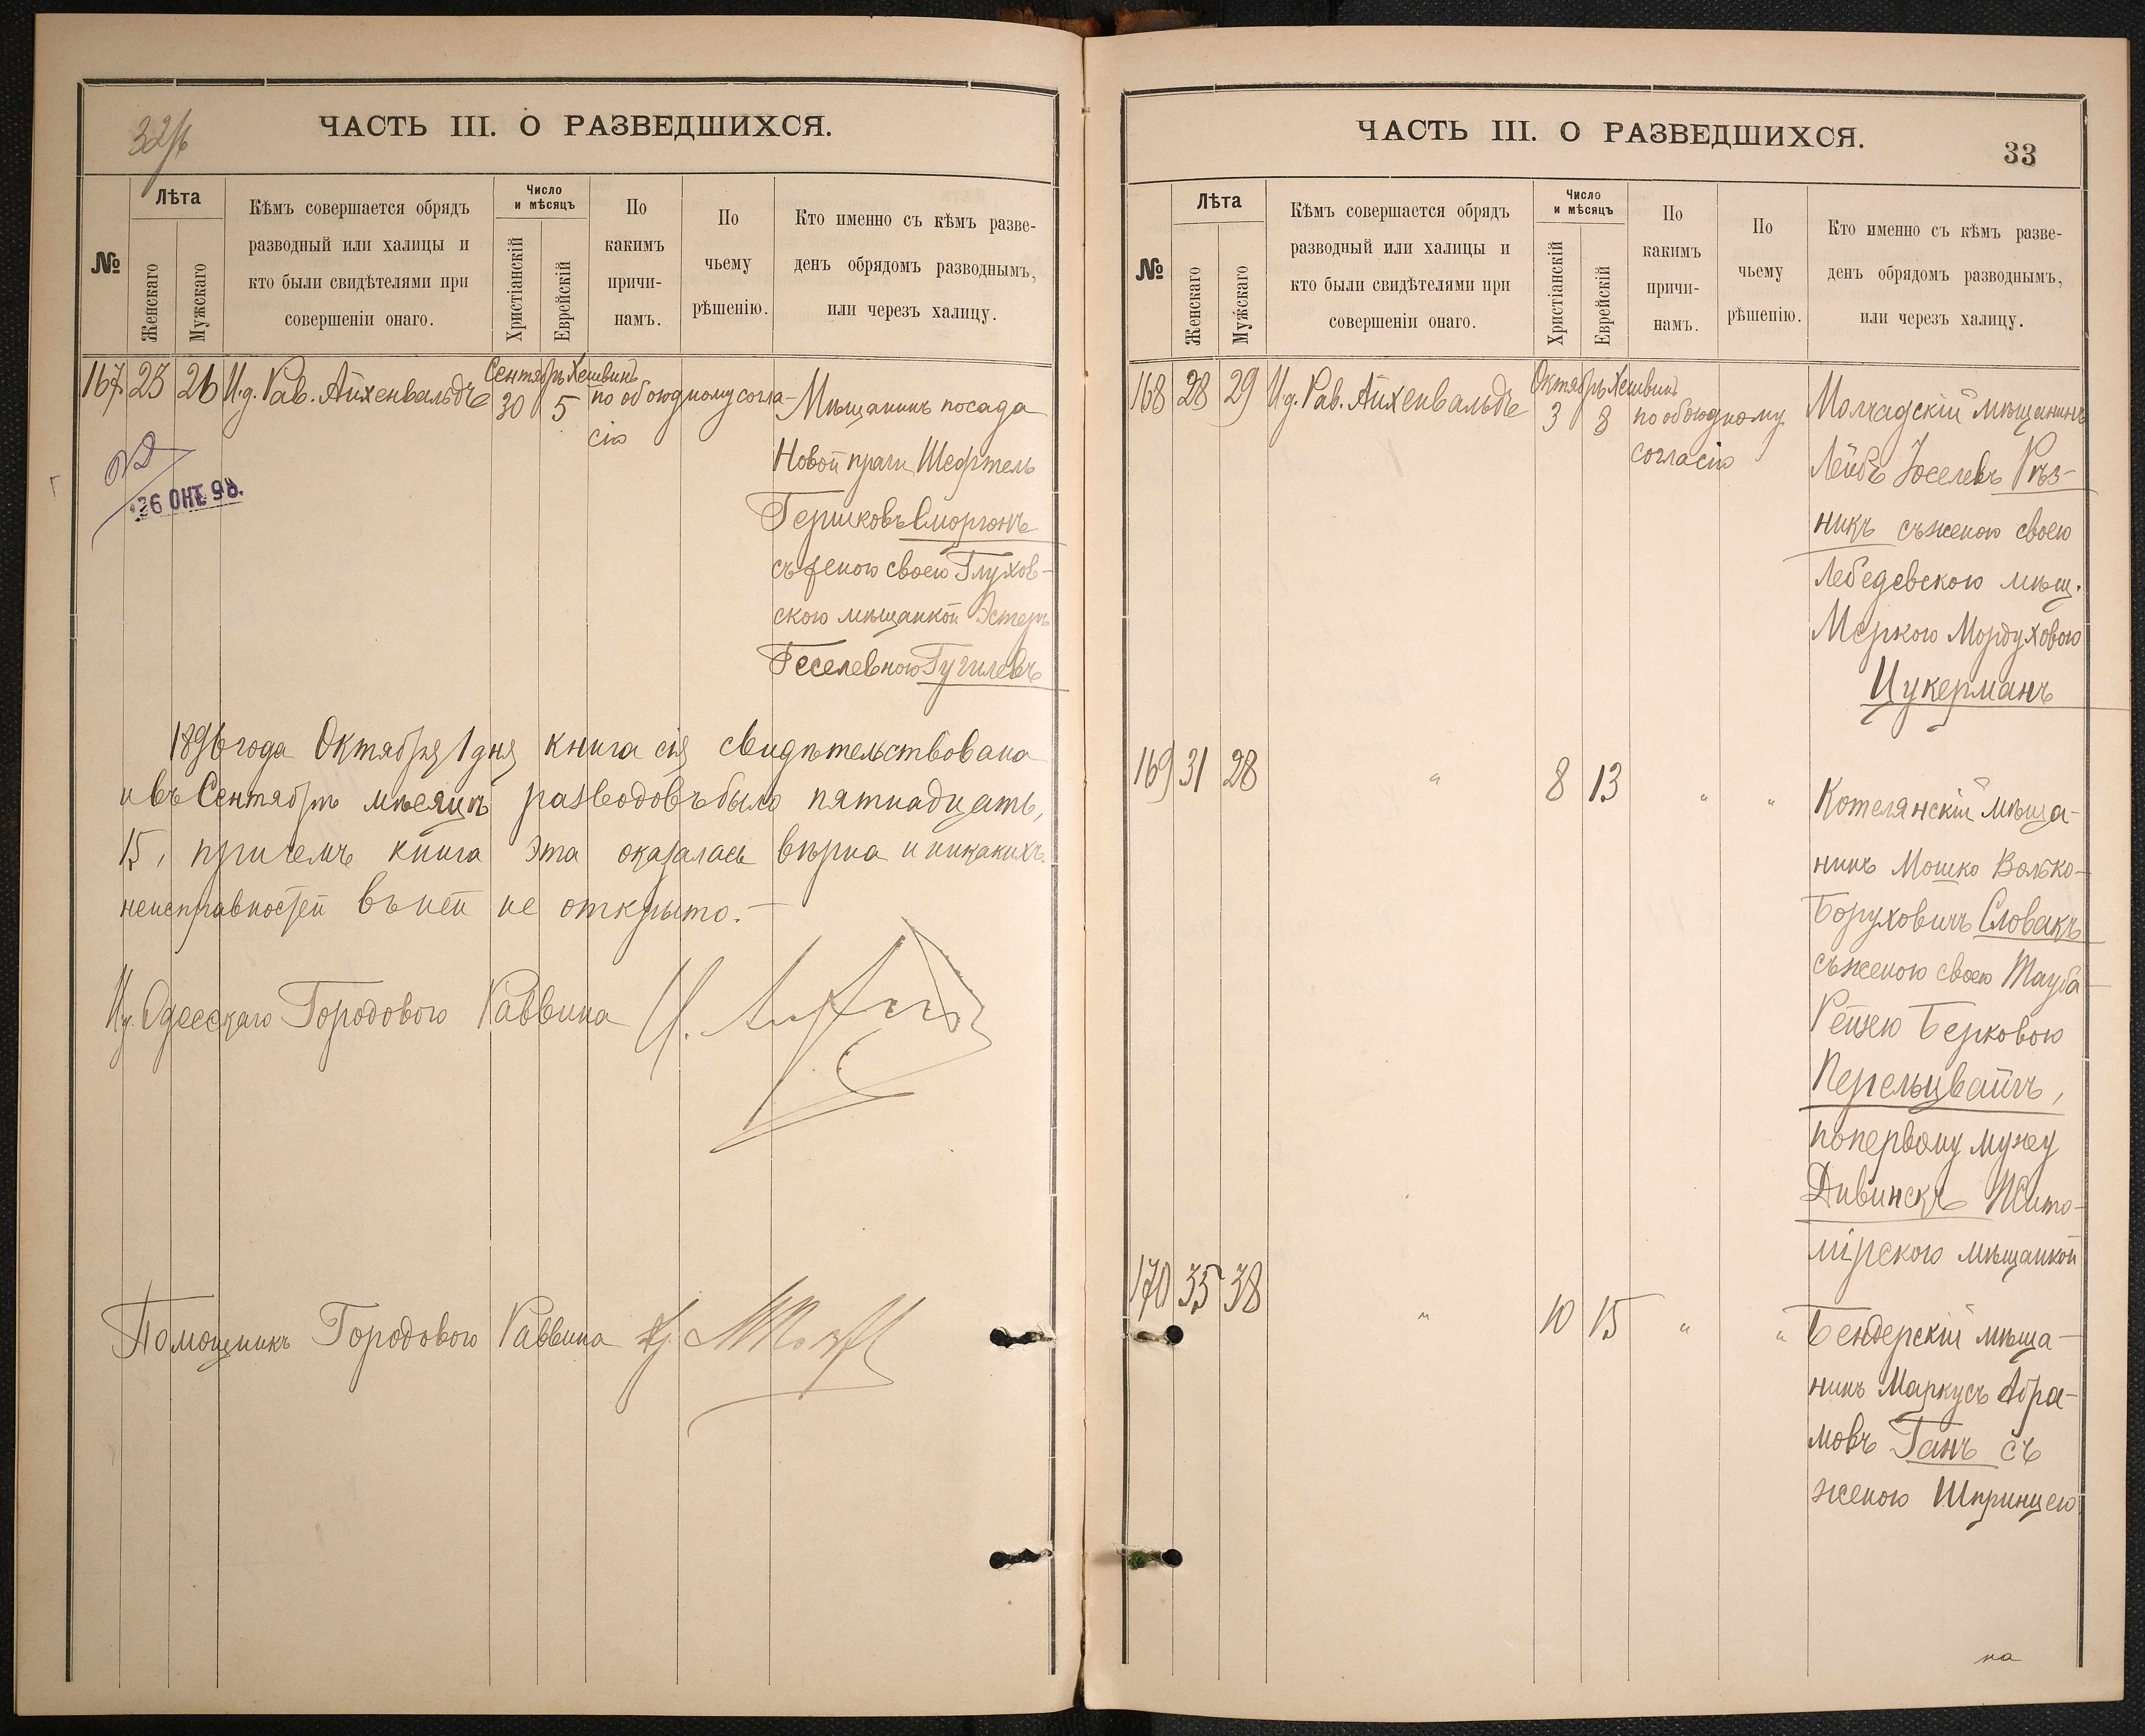 ЧАСТЬ III. О РАЗВЕДШИХСЯ.
№
Лѣта
Женскаго
Мужскаго
Кѣмъ совершается обрядъ
разводный или халицы и
кто были свидѣтелями при
совершеніи онаго.
Число
и мѣсяцъ
Христіанскій
Еврейскій
По
какимъ
причи-
намъ.
По
чьему
рѣшенію.
Кто именно съ кѣмъ разве-
денъ обрядомъ разводнымъ,
или черезъ халицу.
167 25 26 И.д. Рав. Айхенвальдъ
Сентябрь Хешвинъ
30 5
по обоюдному согла-
сію
Мѣщанинъ посада
Новой праги Шефтель
Гершковъ Сморгонъ
съ женою своею Глухов-
скою мѣщанкой Эстеръ
Геселевною Гугилевъ
26 ОКТ. 98.
1896 года Октября 1 дня книга сія свидѣтельствована
и въ Сентябрѣ мѣсяцѣ разводовъ было пятнадцать,
15, при чемъ книга эта оказалась вѣрна и никакихъ
неисправностей въ ней не открыто.—
И.д. Одесскаго Городового Раввина
Помощникъ Городового Раввина
ЧАСТЬ III. О РАЗВЕДШИХСЯ.
33
№
Лѣта
Женскаго
Мужскаго
Кѣмъ совершается обрядъ
разводный или халицы и
кто были свидѣтелями при
совершеніи онаго.
Число
и мѣсяцъ
Христіанскій
Еврейскій
По
какимъ
причи-
намъ.
По
чьему
рѣшенію.
Кто именно съ кѣмъ разве-
денъ обрядомъ разводнымъ,
или черезъ халицу.
168 28 29 И.д. Рав. Айхенвальдъ
Октябрь Хешвинъ
3 8
по обоюдному
согласію
Молчадскій мѣщанинъ
Лейбъ Іоселевъ Рѣз-
никъ съ женою своею
Лебедевскою мѣщ.
Меркою Мордуховою
Цукерманъ
169 31 28 " 8 13 " "
Котелянскій мѣща-
нинъ Мошко Волько-
Боруховичъ Словакъ
съ женою своею Тауба-
Рейзею Берковою
Перельцвайгъ,
по первому мужу
Дивинскъ Жито-
мірскою мѣщанкой
170 35 38 " 10 15 " "
Бендерскій мѣща-
нинъ Маркусъ Абра-
мовъ Ганъ съ
женою Шпринцею
на